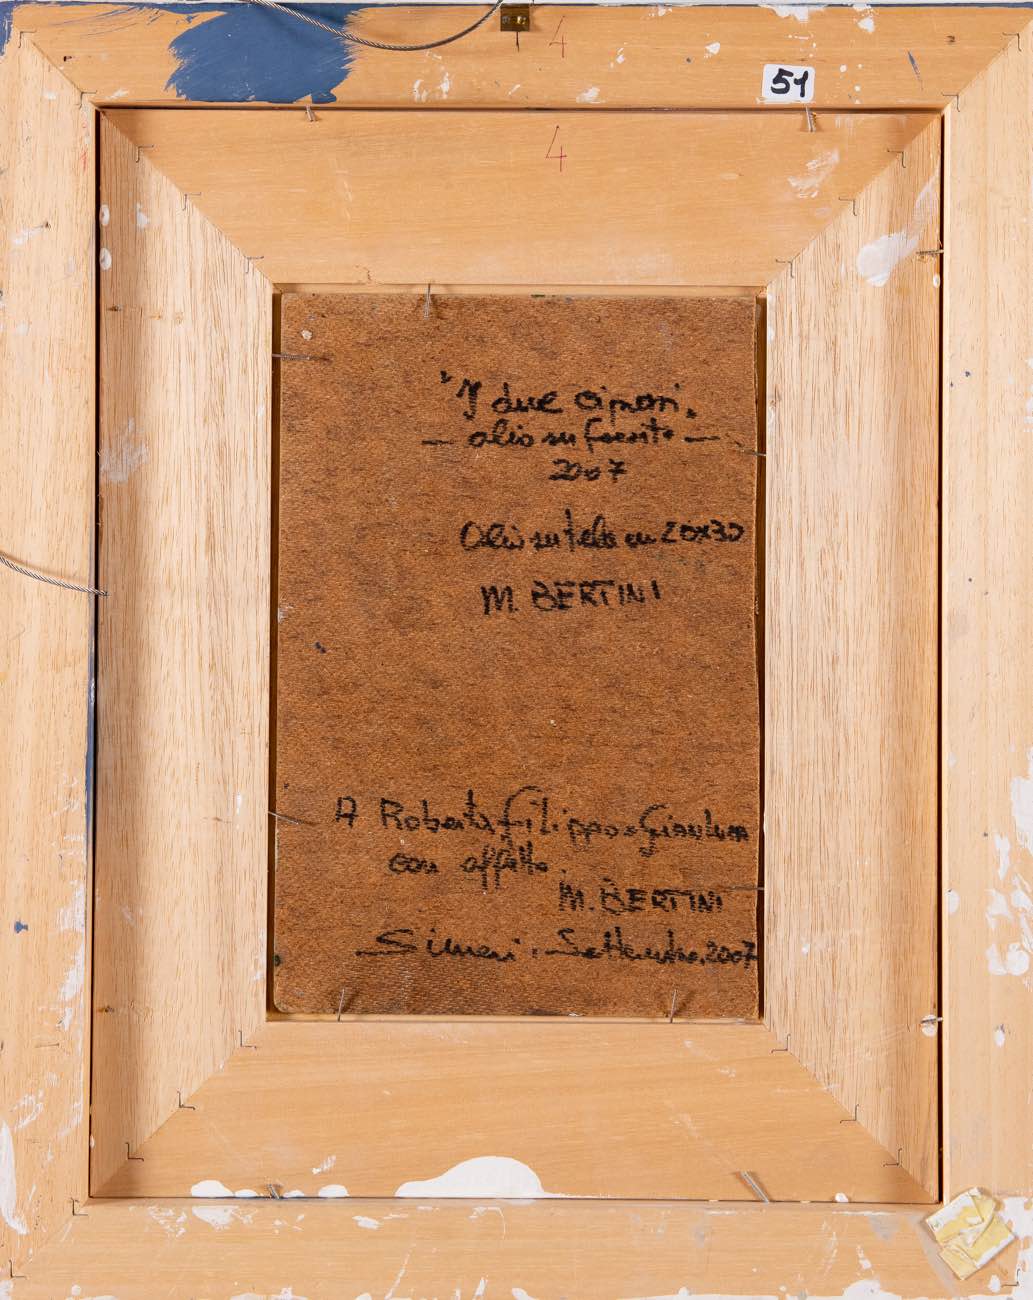 4
51
4
"I due
— olio su faesite —
2007
Olio su tela cm 20x30
M. BERTINI
A Roberta Filippo e Gianluca
con affetto
M. BERTINI
Simeri. Settembre, 2007